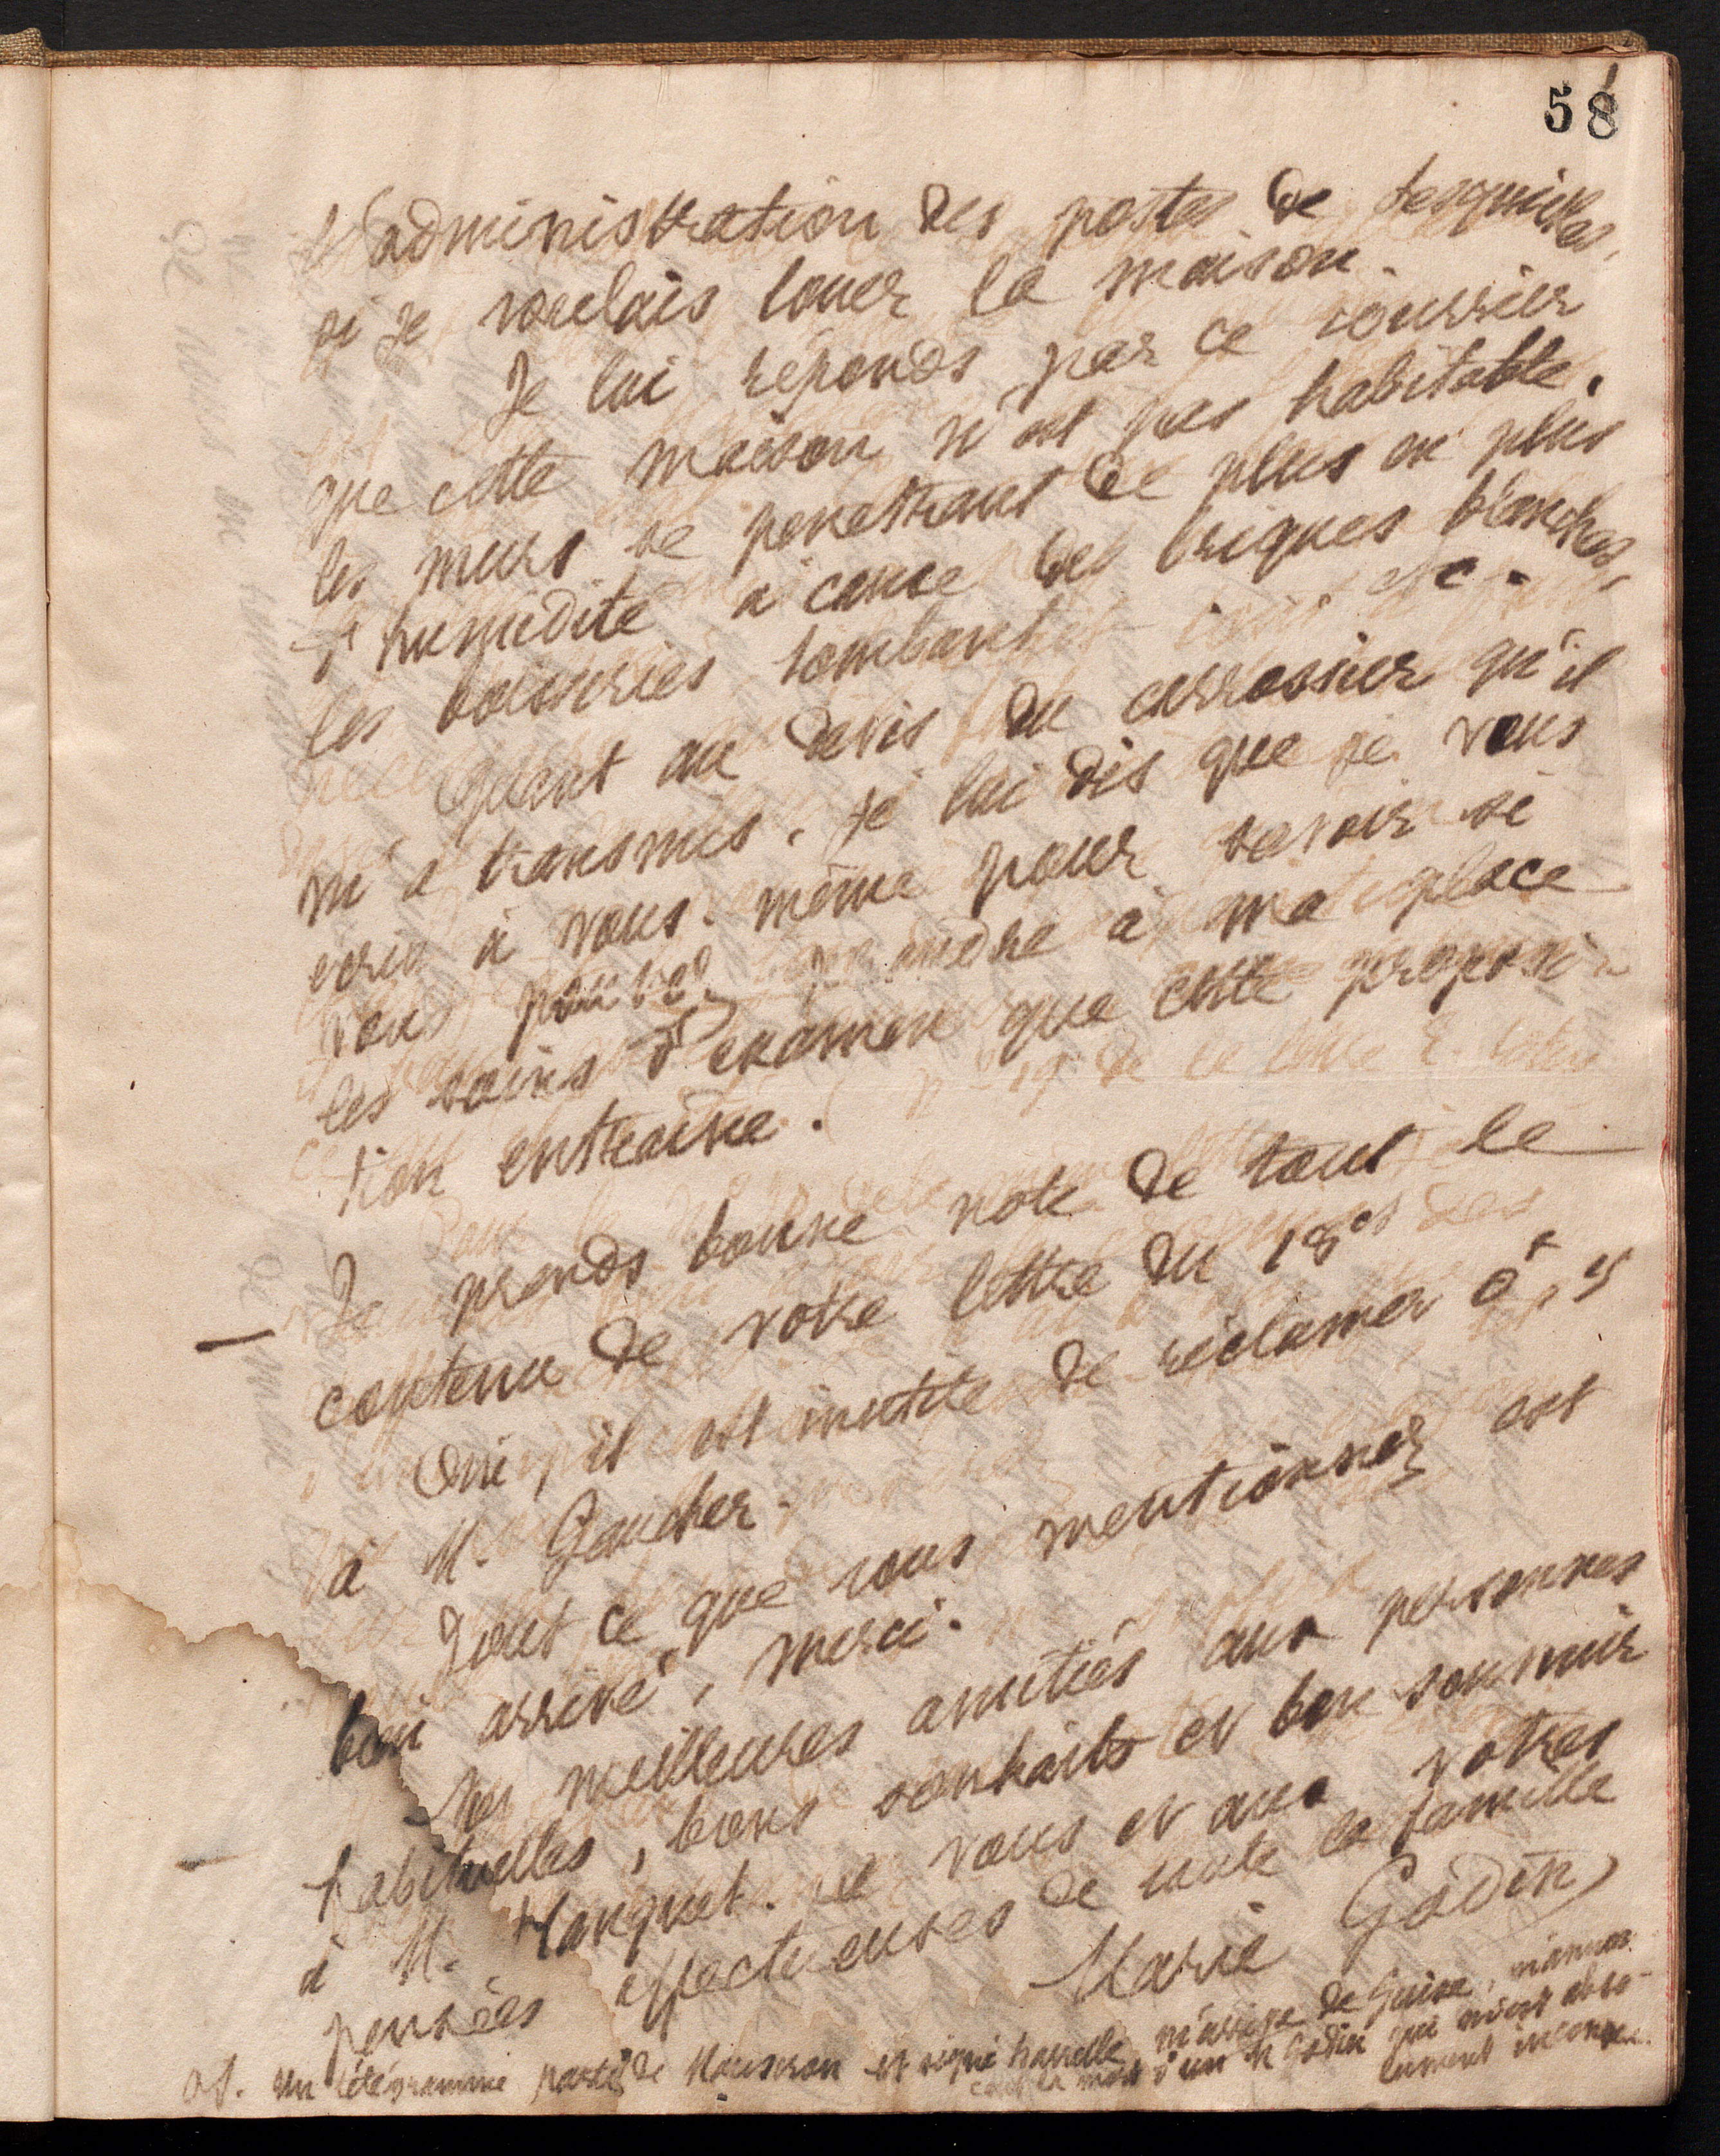 58
l'administration des postes de Lesquielles,
si je voulais louer la maison.
Je lui réponds par ce courrier
que cette maison n'est pas habitable,
les murs se pénétrant de plus en plus
d'humidité à cause des briques blanches,
les boiseries tombant etc.
Quant au devis du carrossier qu'il
m'a transmis, je lui dis que je vous
écris à vous-même pour savoir si
vous pouvez prendre à ma place
les soins d'examen que cette proposi-
tion entraîne.
— Je prends bonne note de tout le
contenu de votre lettre du 18 ct
Oui, il est inutile de réclamer
à M. Gaucher.
Tout ce que vous mentionnez est
bien arrivé, merci.
— Nos meilleures amitiés aux personnes
habituelles, bons souhaits et bon souvenir
à M. Hanquet. à vous et aux vôtres
pensées affectueuses de toute la famille
Marie Godin
un télégramme parti de Mouscron et signé m'arrive de Guise, m'annon-
cant la mort d'un M Godin qui m'est abso-
lument inconnu.